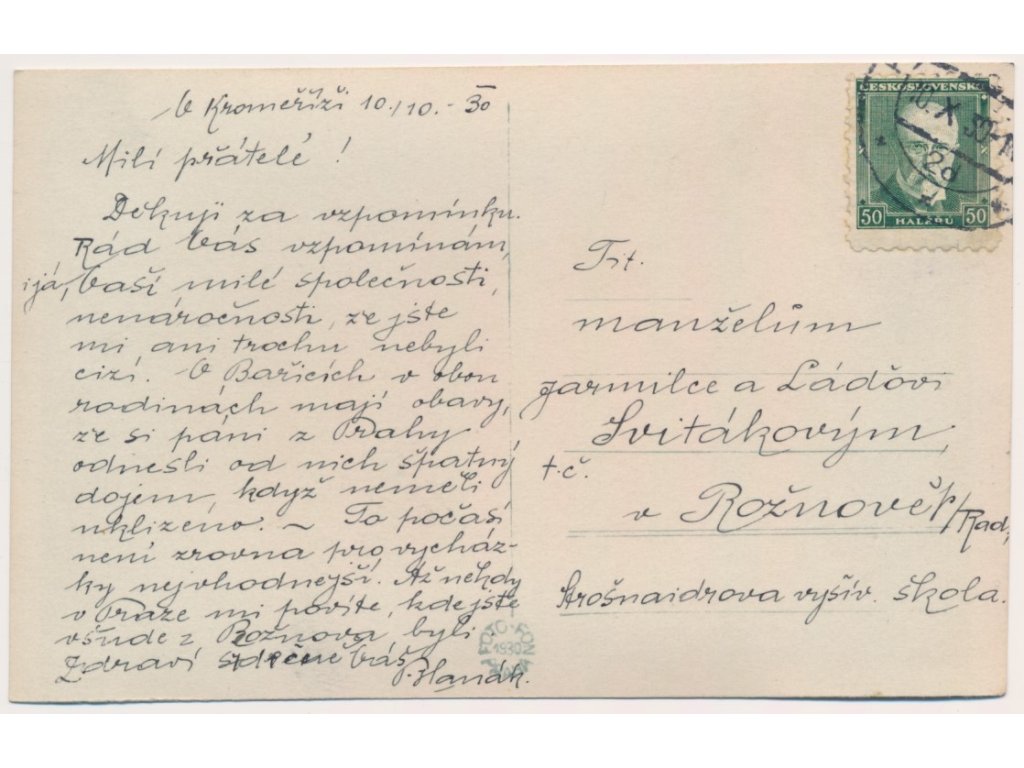 V Kroměříži 10./10. - 30
Milí přátelé !
Děkuji za vzpomínku.
Rád Vás vzpomínám,
i já, Vaší milé společnosti,
nenáročnosti, že jste
mi ani trochu nebyli
cizí. V Bařicích v obou
rodinách mají obavy,
že si páni z Prahy
odnesli od nich špatný
dojem, když neměli
uklizeno. ~ To počasí
není zrovna pro vycház-
ky nejvhodnější. Až někdy
v Praze mi povíte, kde jste
všude z Rožnova byli
Zdraví srdečně Váš
Hanák.
ČESKOSLOVENSKO
50 HALÉŘŮ 50
10.X 30
2d
Tit.
manželům
Jarmilce a Láďovi
Svitákovým,
t.č.
v Rožnově p/Rad,
Strošnaidrova vyšív. škola.
FOTO-FON
1930